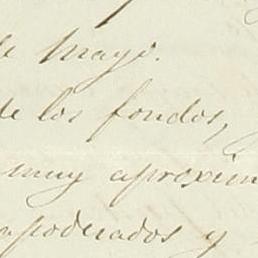 de Mayo.
de los fondos,
muy aproxim
apoderados y